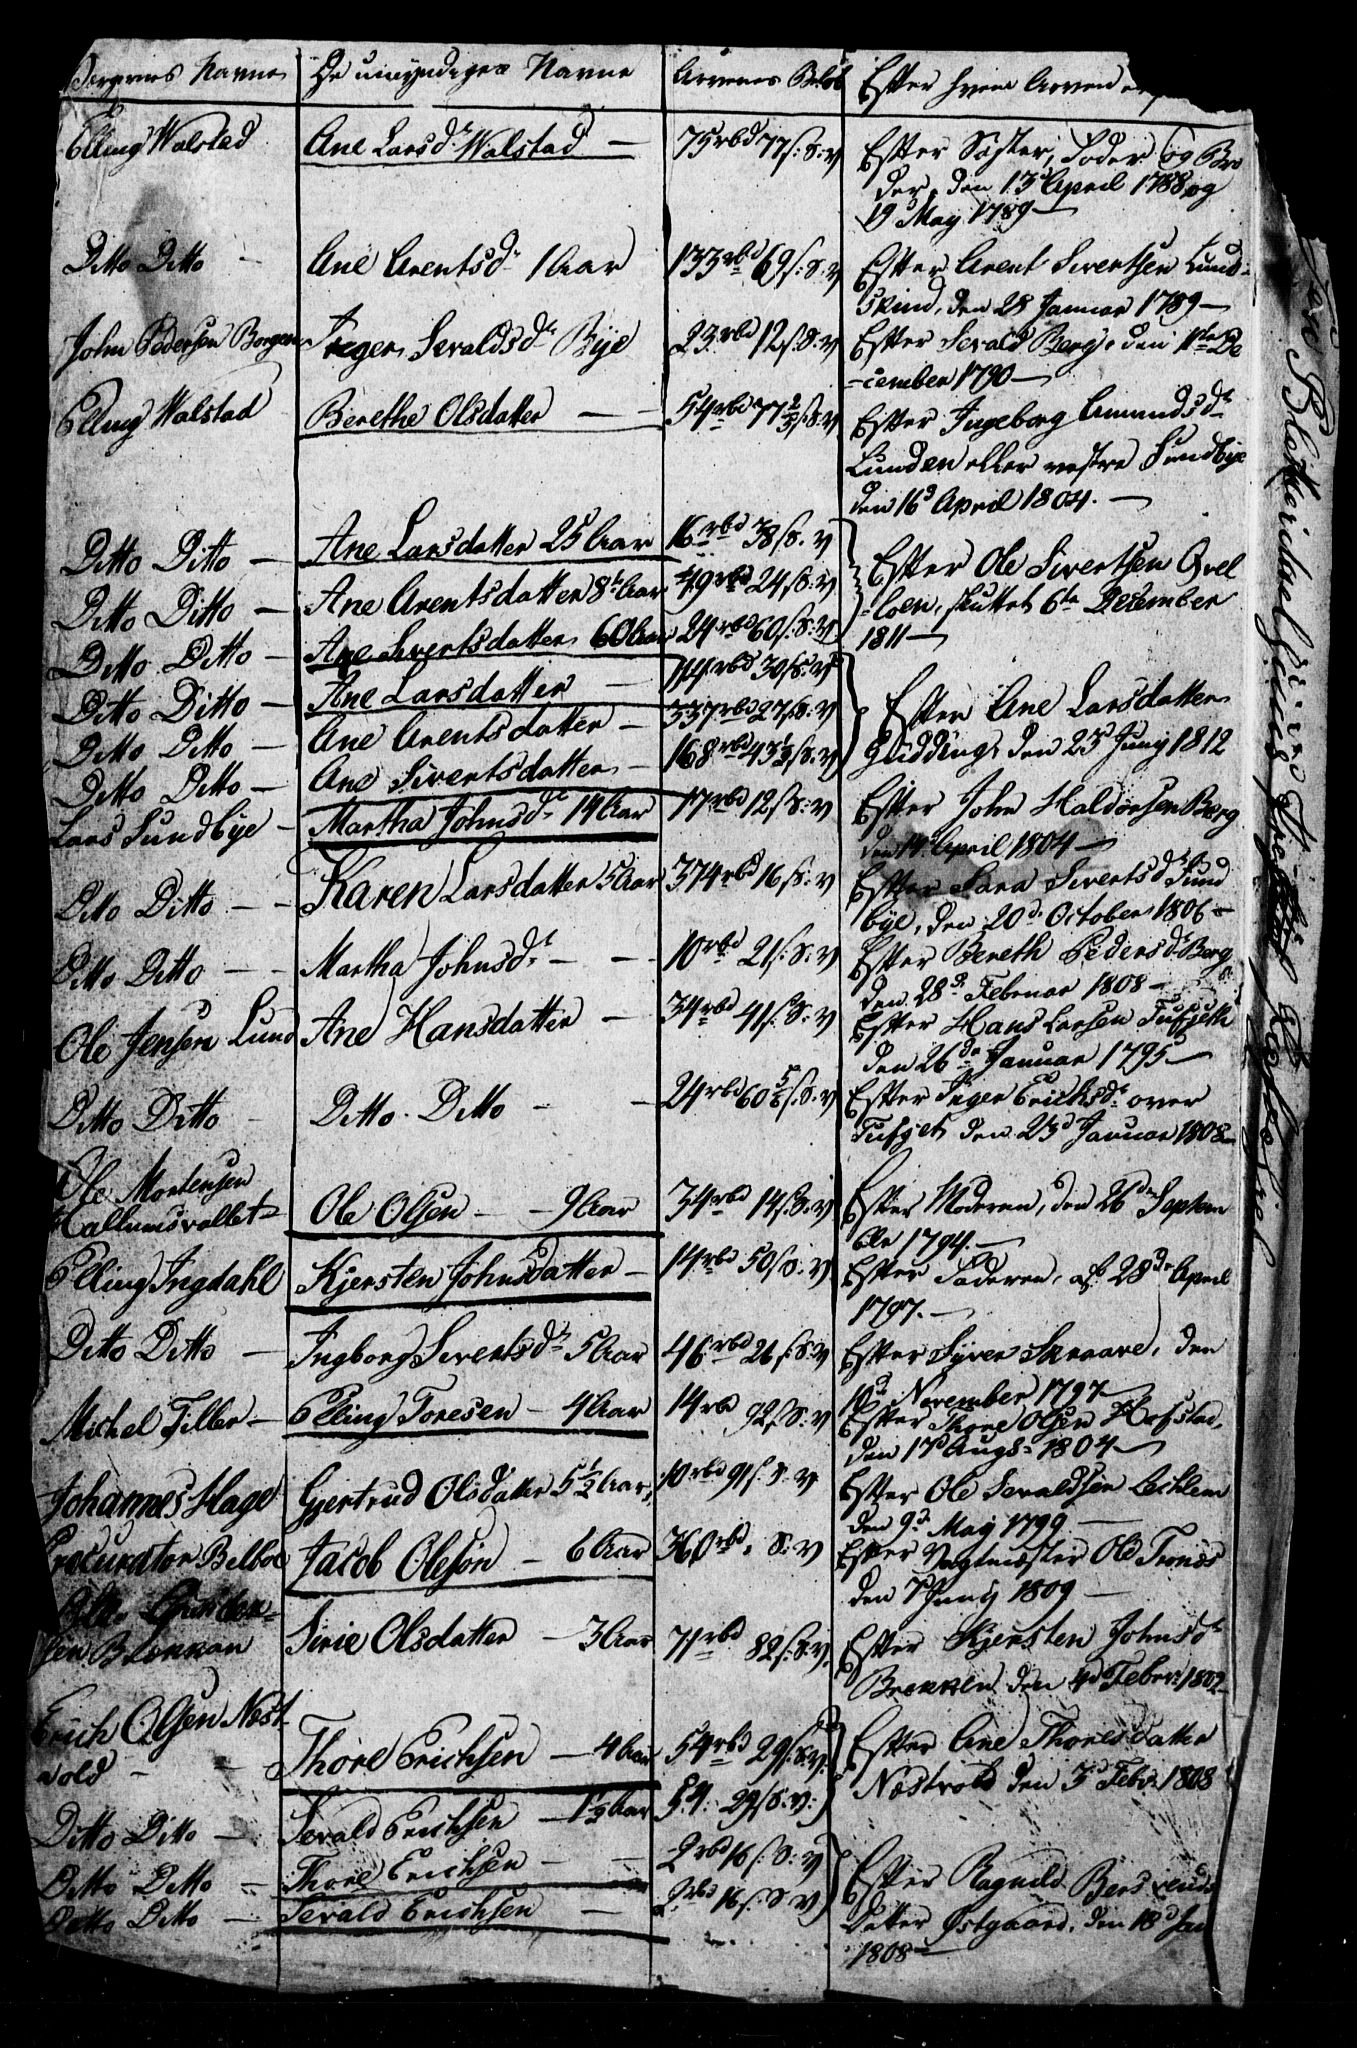 Navne De umyndiges Navne Arvenes Beløb Efter hvem Arven
Elling Walstad Ane Larsdr Walstad — 75 rbd 77 s: S: V Efter Søster, Fader og Bro
der, den 13 April 1788 og
19 May 1789 —
Ditto Ditto — Ane Arentsdr 1 Aar 133 rbd 69 s: S: V Efter Arent Sivertsen Lund
skind, den 28 Januar 1789 —
John Pedersen Borgen Inger Sevaldsdr Bye 23 rbd 12 s: S: V Efter Sevald Berg, den 11te De
-cember 1790 —
Elling Walstad Berethe Olsdatter — — 54 rbd 77 2/3 s: S: V Efter Ingeborg Amundsdr
Lunden eller vestre Sundbye
den 16d April 1804. —
Ditto Ditto — Ane Larsdatter 25 Aar 16 rbd 38 s: S: V
Efter Ole Sivertsen Qvel
Ditto Ditto — Ane Arentsdatter 8 Aar 49 rbd 24 s: S: V
-loen, sluttet 6te December
Ditto Ditto — Ane Sivertsdatter 60 Aar 24 rbd 60 s: S: V
1811 —
Ditto Ditto — Ane Larsdatter — 114 rbd 39 s: S: V
Efter Ane Larsdatter
Ditto Ditto — Ane Arentsdatter — 337 rbd 27 s: S: V
Gudding, den 23d Juny 1812
Ditto Ditto — Ane Sivertsdatter — 168 rbd 43 1/2 s: S: V
Lars Sundbye — Martha Johnsdr 14 Aar 17 rbd 12 s: S: V Efter John Haldorsen Berg
den 14 April 1804 —
Ditto Ditto — — Karen Larsdatter 5 Aar 374 rbd 16 s: S: V Efter Sara Sivertsdr Sund
bye, den 20d October 1806 —
Ditto Ditto — — Martha Johnsdr — — 10 rbd 21 s: S: V Efter Bereth Pedersdr Berg
den 28d Februar 1808 —
Ole Jensen Lund Ane Hansdatter — 34 rbd 41 s: S: V Efter Hans Larsen Tufseth
den 26de Januar 1795 —
Ditto Ditto — Ditto Ditto — — 24 rbd 60 s: S: V Efter Inger Erichsdr over
Tufset den 23d Januar 1808 —
Ole Mortensen
Hallumsvallet Ole Olsen — — 9 Aar 34 rbd 14 s: S: V Efter Moderen, den 26de Septem
ber 1794. —
Elling Ingdahl Kjersten Johnsdatter — 14 rbd 50 s: S: V Efter Faderen, af 28de April
1797. —
Ditto Ditto — Ingborg Sivertsdr 5 Aar 46 rbd 26 s: S: V Efter Syver Skraare, den
10d November 1797 —
Michel Tiller — Elling Toresen — 4 Aar 14 rbd 92 s: S: V Efter Thore Olsen Hofstad,
den 17d Augs: 1804 —
Johannes Hage Gjertrud Olsdatter 5 1/2 Aar 10 rbd 91 s: S: V Efter Ole Sevaldsen Lechlem
den 9d May 1799 —
Procurator Belboe Jacob Olesøn — 6 Aar 360 rbd " S: V Efter Vagtmester Ole Tronæs
den 7 Juny 1809 —
sen Brækkan Sirie Olsdatter — 3 Aar 71 rbd 82 s: S: V. Efter Kjersten Johnsdr
Brækken den 4d Febr: 1802
Erich Olsen Næst
vold — — Thore Erichsen — 4 Aar 54 rbd 29 s: S: V. Efter Ane Thoresdatter
Næstvold den 3d Febr: 1808
Ditto Ditto — Sevald Erichsen — 1 1/2 Aar 54: 29 s: S: V:
Ditto Ditto — Thore Erichsen — — 2 rbd 16 s: S: V Efter Ragnild Bersvends
Ditto Ditto — Sevald Erichsen — 2 rbd 16 s: S: V
Datter Østgaard, den 18d Jan
1808 —